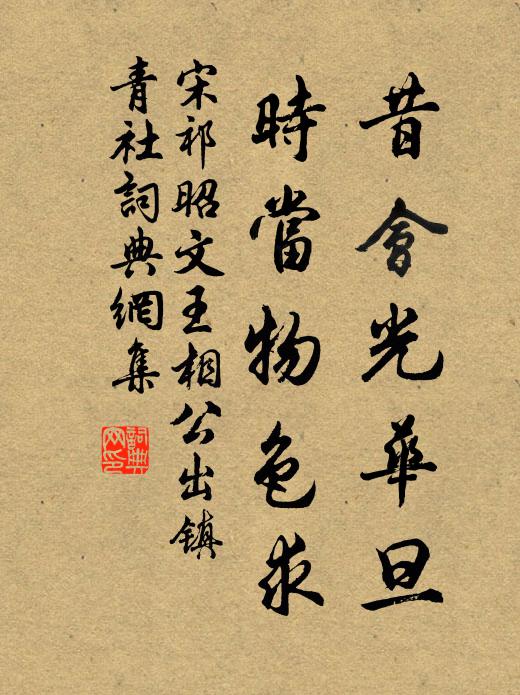 昔會光華旦
時當物色求
宋祁昭文王相公出鎮
青社詞典網集
詞典網印